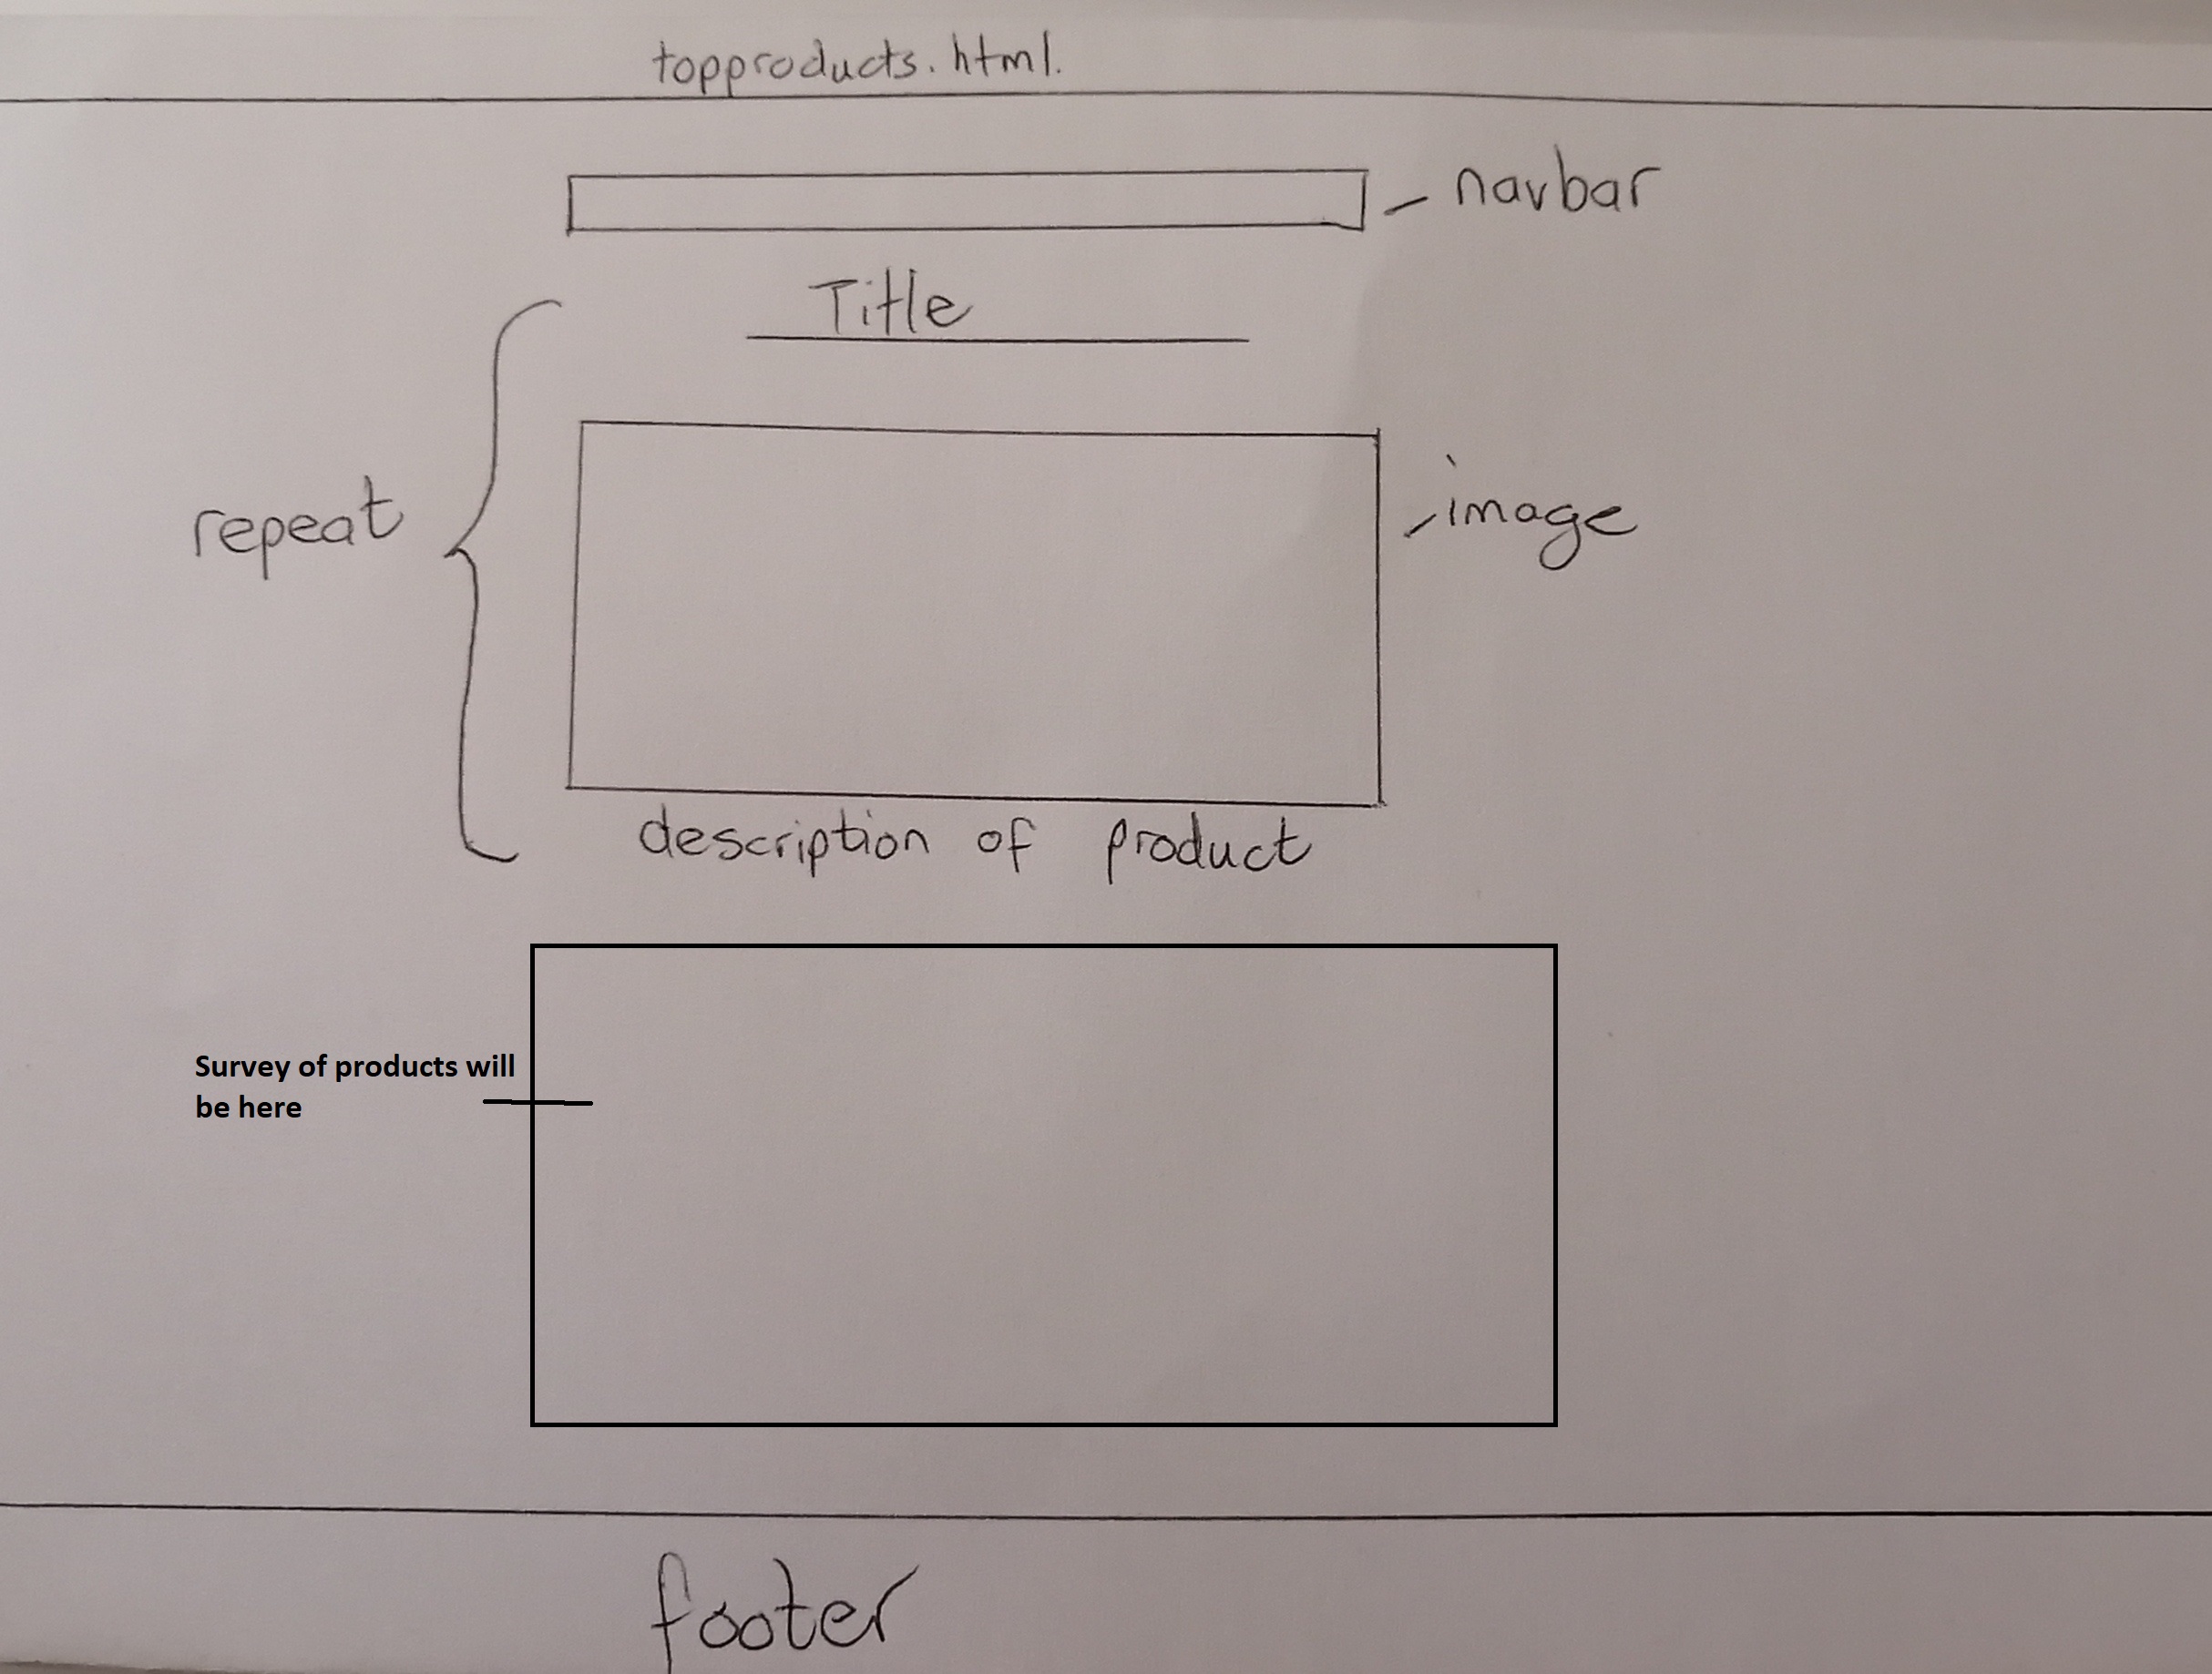 topproducts.html.
navbar
Title
repeat
image
description of product
Survey of products will
be here
footer